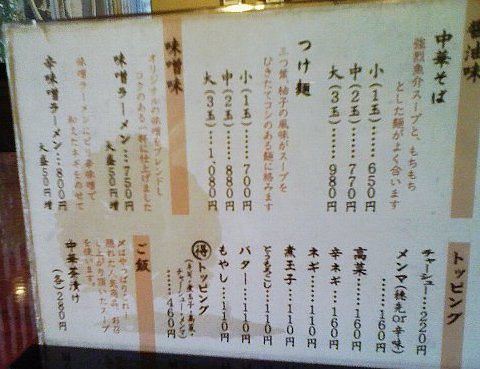 醤油味
中華そば
強烈魚介スープと、もちもち
とした麺がよく合います
小（1玉）……650円
中（2玉）……770円
大（3玉）……980円
つけ麺
三つ葉、柚子の風味がスープを
ひきたてコシのある麺に絡みます
小（1玉）……700円
中（2玉）……880円
大（3玉）……1,080円
味噌味
オリジナルの味噌をブレンドし
コクのある一杯に仕上げました
味噌ラーメン……750円
大盛50円増
味噌ラーメンにピリ辛味噌で
和えたネギをのせて
辛味噌ラーメン……800円
大盛50円増
トッピング
チャーシュー……220円
メンマ（穂先or辛味）
……160円
高菜……160円
辛ネギ……160円
ネギ……110円
煮玉子……110円
とうもろこし……110円
バター……110円
もやし……110円
得トッピング
……460円
ご飯
〆はやっぱりこれ！
し上がり頂いたスープ
を使います。
中華茶漬け
（冬）280円